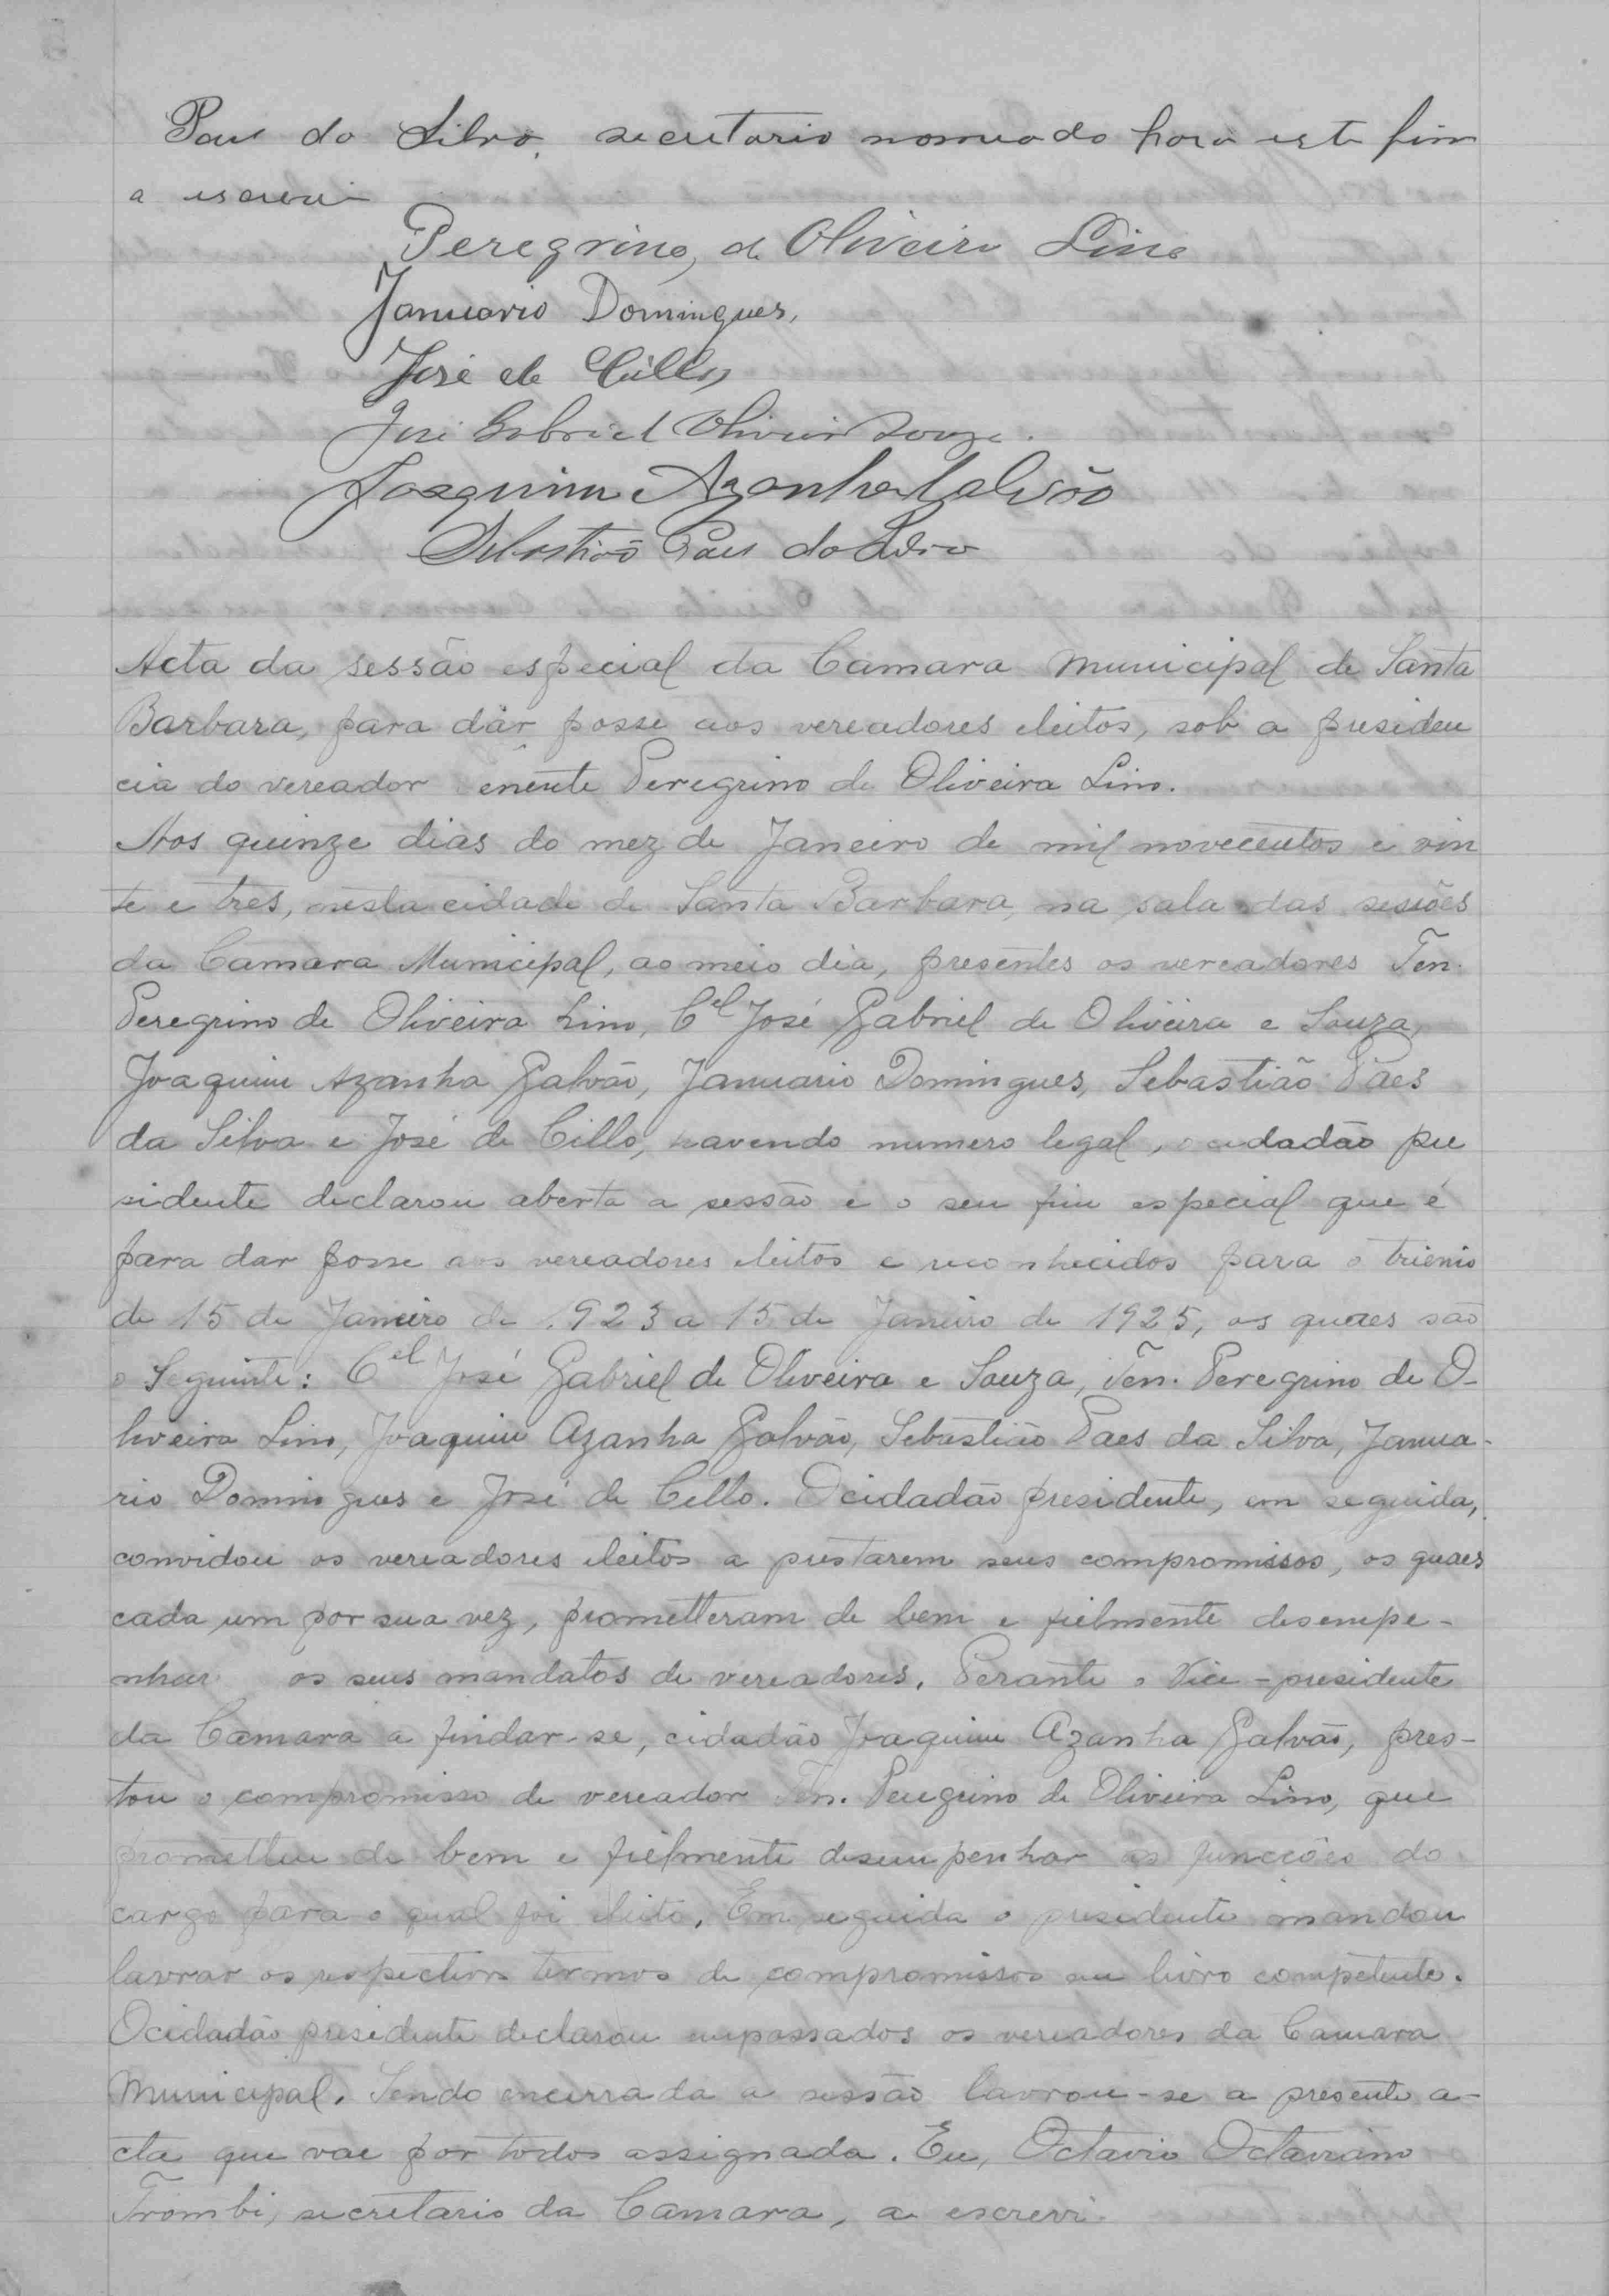 Paes da Silva, secretario nomeado para este fim
a escrevi
Peregrino de Oliveira Lino
Januario Domingues,
José de Cillo
José Gabriel Oliveira Souza.
Joaquim Azanha Galvão
Sebastião Paes da Silva
Acta da sessão especial da Camara Municipal de Santa
Barbara, para dár posse aos vereadores eleitos, sob a presiden
cia do vereador enente Peregrino de Oliveira Lino.
Aos quinze dias do mez de Janeiro de mil novecentos e vin
te e tres, nesta cidade de Santa Barbara, na sala das sessões
da Camara Municipal, ao meio dia, presentes os vereadores Ten.
Peregrino de Oliveira Lino, Cel José Gabriel de Oliveira e Souza,
Joaquim Azanha Galvão, Januario Domingues, Sebastião Paes
da Silva e José de Cillo, havendo numero legal, o cidadão pre
sidente declarou aberta a sessão e o seu fim especial que é
para dar posse aos vereadores eleitos e reconhecidos para o trienio
de 15 de Janeiro de 1923 a 15 de Janeiro de 1925, os quaes são
o Seguinte: Cel José Gabriel de Oliveira e Souza, Ten. Peregrino de O-
liveira Lino, Joaquim Azanha Galvão, Sebastião Paes da Silva, Janua-
rio Domingues e José de Cillo. O cidadão presidente, em seguida,
convidou os vereadores eleitos a prestarem seus compromissos, os quaes
cada um por sua vez, prometteram de bem e fielmente desempe-
nhar os seus mandatos de vereadores. Perante o Vice-presidente
da Camara a findar-se, cidadão Joaquim Azanha Galvão, pres-
tou o compromisso de vereador Ten. Peregrino de Oliveira Lino, que
prometteu de bem e fielmente desempenhar as funcções do
cargo para o qual foi eleito. Em seguida o presidente mandou
lavrar os respectivos termos de compromissos em livro competente.
O cidadão presidente declarou empossados os vereadores da Camara
Municipal. Sendo encerrada a sessão lavrou-se a presente a-
cta que vae por todos assignada. Eu, Octavio Octaviano
Trombi, secretario da Camara, a escrevi.